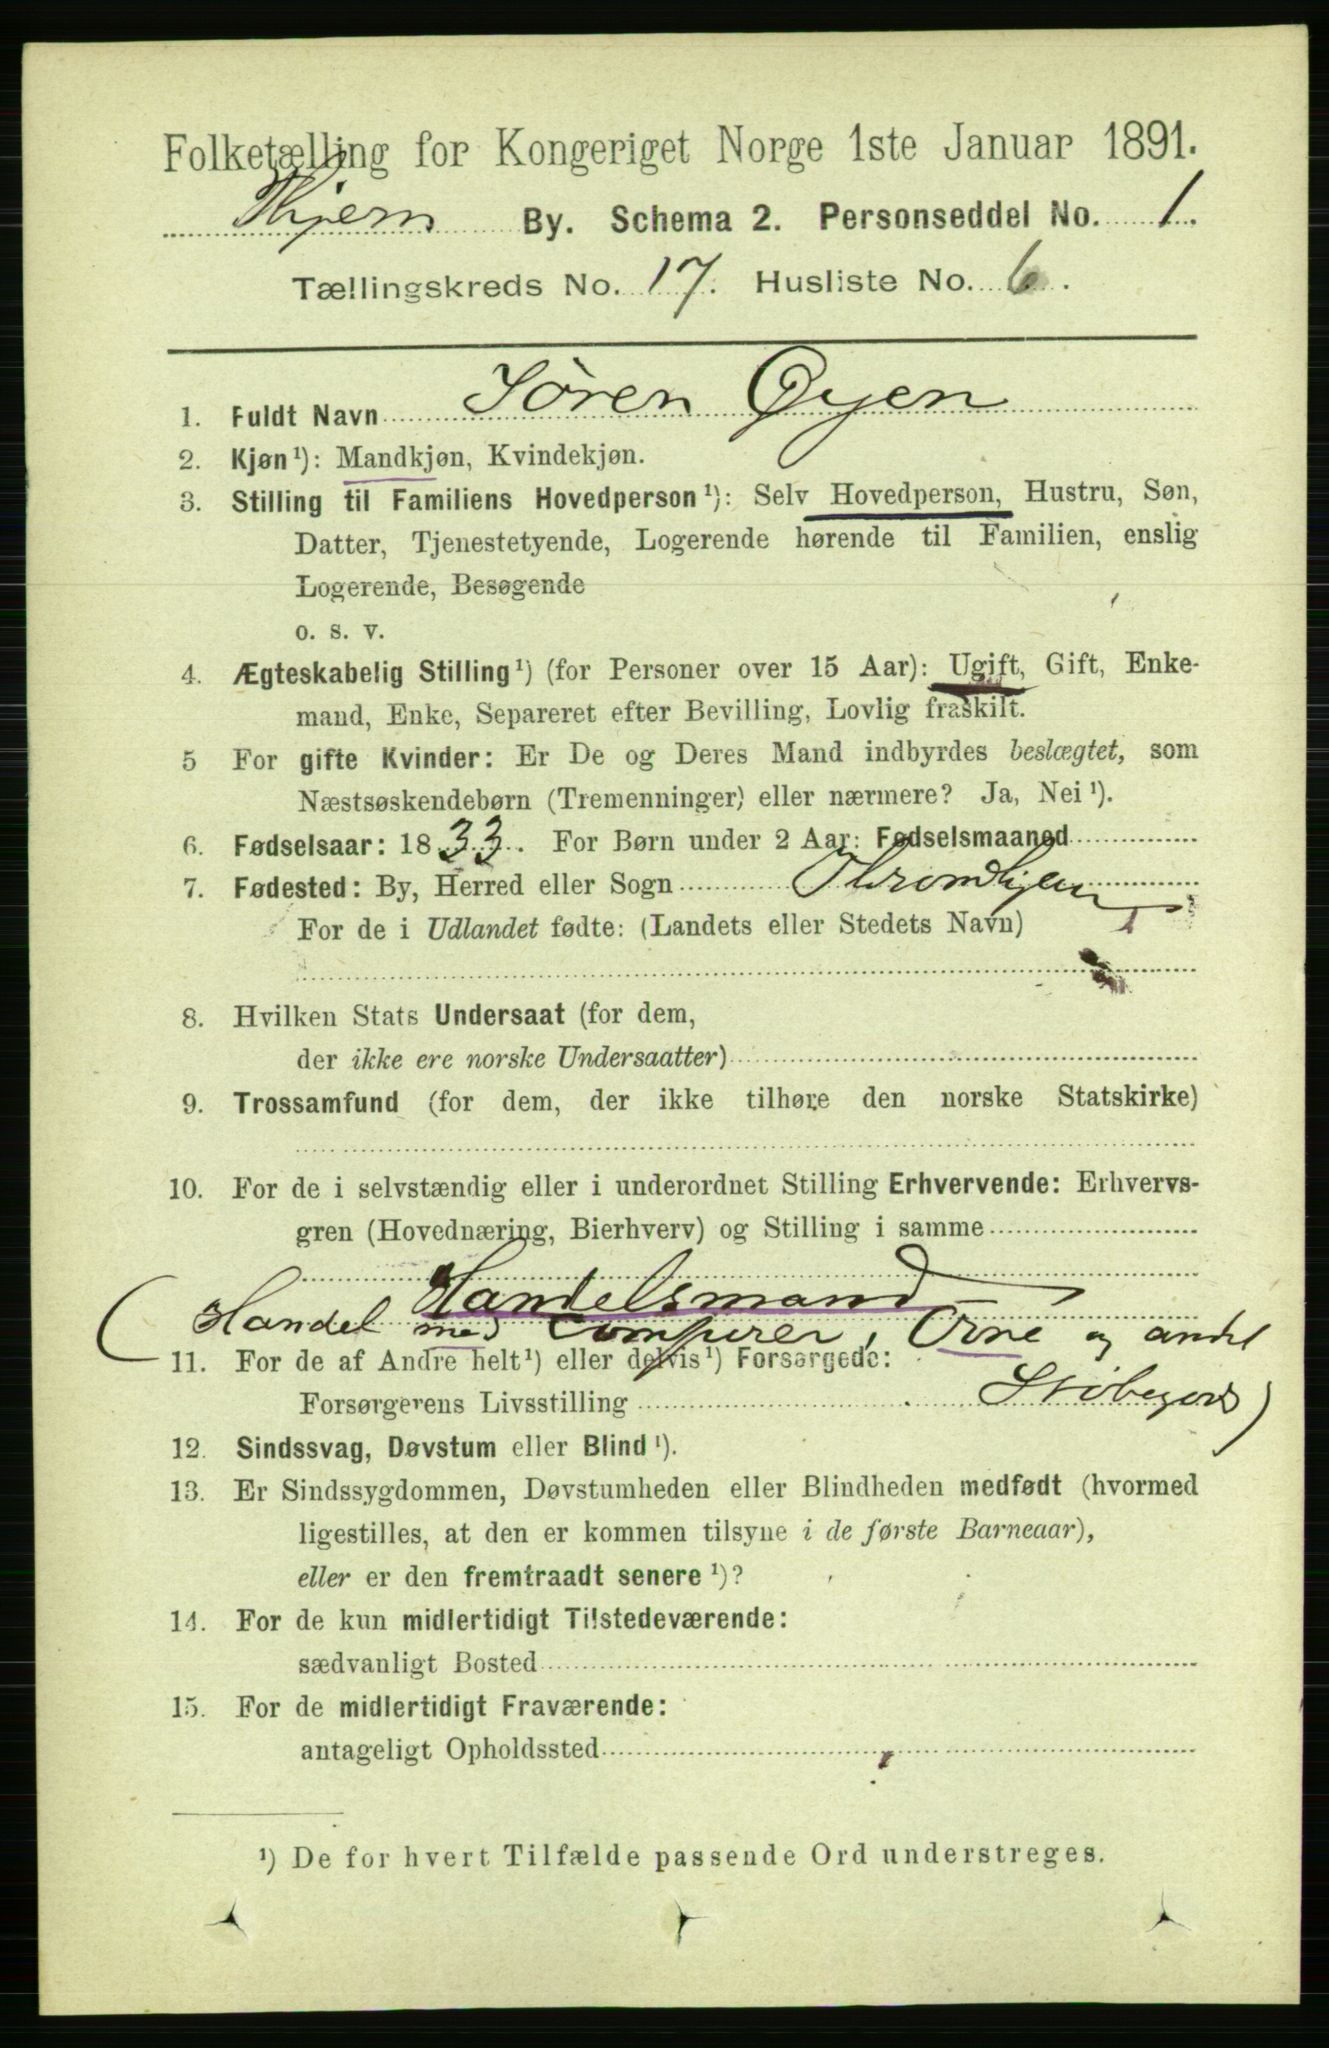 Folketælling for Kongeriget Norge 1ste Januar 1891.
Thjem By. Schema 2. Personseddel No. 1.
Tællingskreds No. 17. Husliste No. 6.
1. Fuldt Navn Sören Øyen
2. Kjøn¹): Mandkjøn, Kvindekjøn.
3. Stilling til Familiens Hovedperson¹): Selv Hovedperson, Hustru, Søn,
Datter, Tjenestetyende, Logerende hørende til Familien, enslig
Logerende, Besøgende
o. s. v.
4. Ægteskabelig Stilling¹) (for Personer over 15 Aar): Ugift, Gift, Enke-
mand, Enke, Separeret efter Bevilling, Lovlig fraskilt.
5 For gifte Kvinder: Er De og Deres Mand indbyrdes beslægtet, som
Næstsøskendebørn (Tremenninger) eller nærmere? Ja, Nei¹).
6. Fødselsaar: 1833. For Børn under 2 Aar: Fødselsmaaned
7. Fødested: By, Herred eller Sogn Throndhjem
For de i Udlandet fødte: (Landets eller Stedets Navn)
8. Hvilken Stats Undersaat (for dem,
der ikke ere norske Undersaatter)
9. Trossamfund (for dem, der ikke tilhøre den norske Statskirke)
10. For de i selvstændig eller i underordnet Stilling Erhvervende: Erhvervs-
gren (Hovednæring, Bierhverv) og Stilling i samme
Handelsmand
(Handel med Comfurer, Ovne og andet
11. For de af Andre helt¹) eller delvis¹) Forsørgede:
Forsørgerens Livsstilling Støbegods)
12. Sindssvag, Døvstum eller Blind¹).
13. Er Sindssygdommen, Døvstumheden eller Blindheden medfødt (hvormed
ligestilles, at den er kommen tilsyne i de første Barneaar),
eller er den fremtraadt senere¹)?
14. For de kun midlertidigt Tilstedeværende:
sædvanligt Bosted
15. For de midlertidigt Fraværende:
antageligt Opholdssted
¹) De for hvert Tilfælde passende Ord understreges.